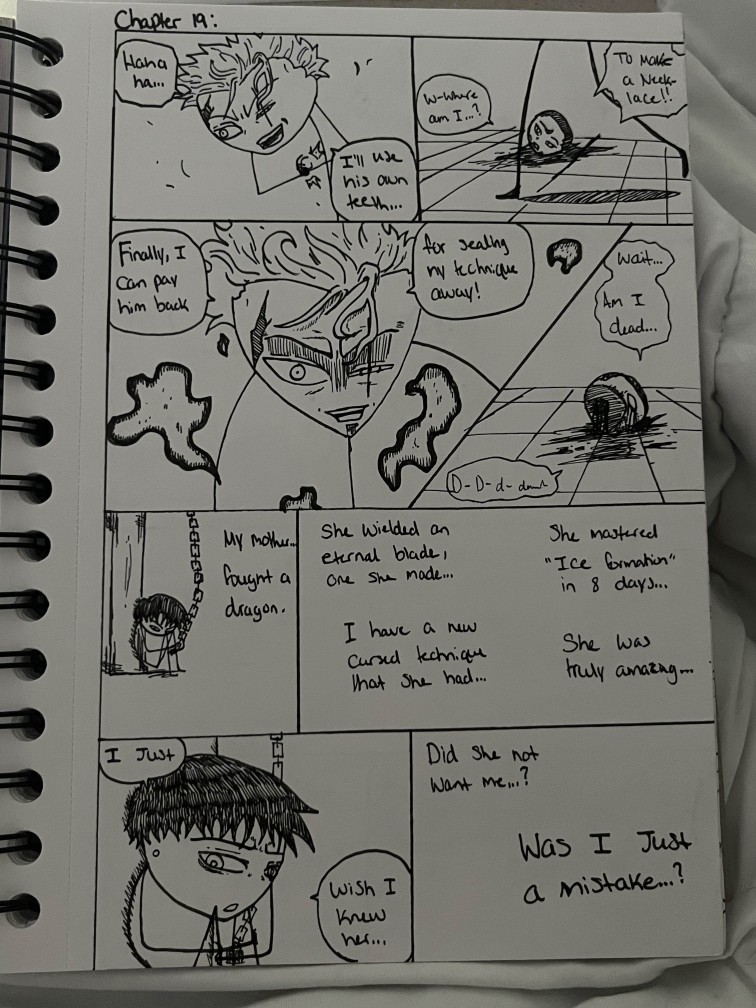 Chapter 19:
Haha
ha...
I'll use
his own
teeth...
W-Where
am I...?
To Make
a Neck-
lace!!
Finally, I
can pay
him back
for sealing
my technique
away!
Wait...
Am I
dead...
D-D-d-
My mother...
fought a
dragon.
She wielded an
eternal blade,
one she made...
I have a new
cursed technique
that she had...
She mastered
"Ice formation"
in 8 days...
She was
truly amazing...
I Just
Wish I
knew
her...
Did she not
want me...?
Was I Just
a mistake...?